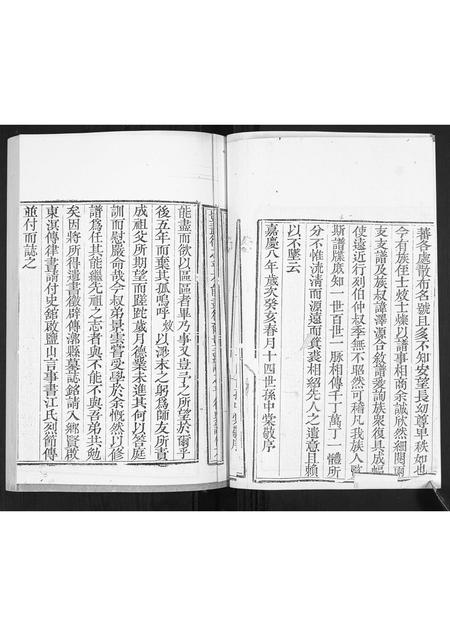 蕃各處散布名號且多不知安望長幼尊卑秩如也
今有族侄士燦以譜事相商余誠欣然細閱
支支譜及族叔諱澤源合敘譜爰諭族衆復具成
使遠近行列伯仲叔季無不昭然可稽凡我族人
斯譜牒應知一世百世一脈相傳千丁萬丁一體所
分不惟流清而源遠而箕裘相紹先人之遺意且賴
以不墜云
嘉慶八年歲次癸亥春月十四世孫中棠敬序
能盡而欲以區區者畢乃事又豈子之所望於爾乎
後五年而棄其孤嗚呼 以渺末之躬為師友所責
成祖父所期望而蹉跎歲月德業未進其何以答庭
訓而慰嚴命哉今叔弟景雲嘗受學於余慨然以修
譜為任其能繼先祖之志者與不能不與吾弟共勉
矣因將所得遺書徵辟傳鄒縣墓誌銘請入鄉賢啟
東溟傳律書請付史館啟鹽山言事書江氏烈節傳
並付而誌之